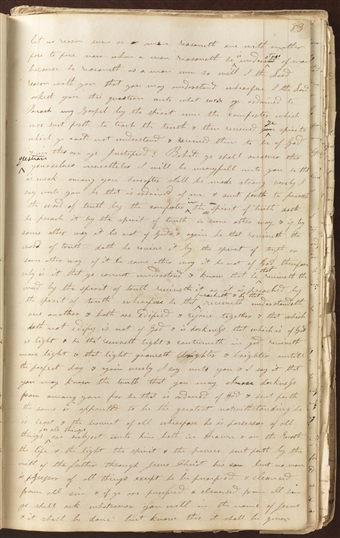 let us reason even as a man reasoneth one with another
face to face now when a man reasoneth he is understood of man
because he reasoneth as a man even so will I the Lord
reason with you that you may understand wherefore I the Lord
asketh you this question unto what were ye ordained to
Preach my Gospel by the spirit even the comforter which
was sent forth to teach the truth & then received ye spirits
which ye could not understand & received them to be of God
& in this are ye justified Behold ye shall answer this
question yourselves nevertheless I will be mercyfull unto you he that
is weak among you hereafter shall be made strong verely I
say unto you he that is ordained of me & sent forth to preach
the word of truth by the comforter in the spirit of truth doth
he preach it by the spirit of truth or some other way & if by
some other way it be not of God & again he that receiveth the
word of truth doth he receive it by the spirit of truth or
some other way if it be some other way it be not of God therefore
why is it that ye cannot understand & know that he that receiveth the
word by the spirit of truth receiveth it as it is preached by
the spirit of truth wherefore he that preacheth & he that receiveth understandeth
one another & both are edified & rejoice together & that which
doth not edify is not of God & is darkness that which is of God
is light & he that receiveth light & continueth in God receiveth
more light & that light groweth brighter & brighter until
the perfect day & again verely I say unto you & I say it that
you may know the truth that you may chase darkness
from among you for he that is ordained of God & sent forth
the same is appointed to be the greatest notwithstanding he
is least & the servant of all wherefore he is possessor of all
things for all things are subject unto him both in Heaven & on the Earth
the life & the light the spirit & the power sent forth by the
will of the father through Jesus Christ his son but no man
is possessor of all things except he be purified & cleansed
from all sin & if ye are purified & cleansed from all sin
ye shall ask whatsoever you will in the name of Jesus
& it shall be done but know this it shall be given